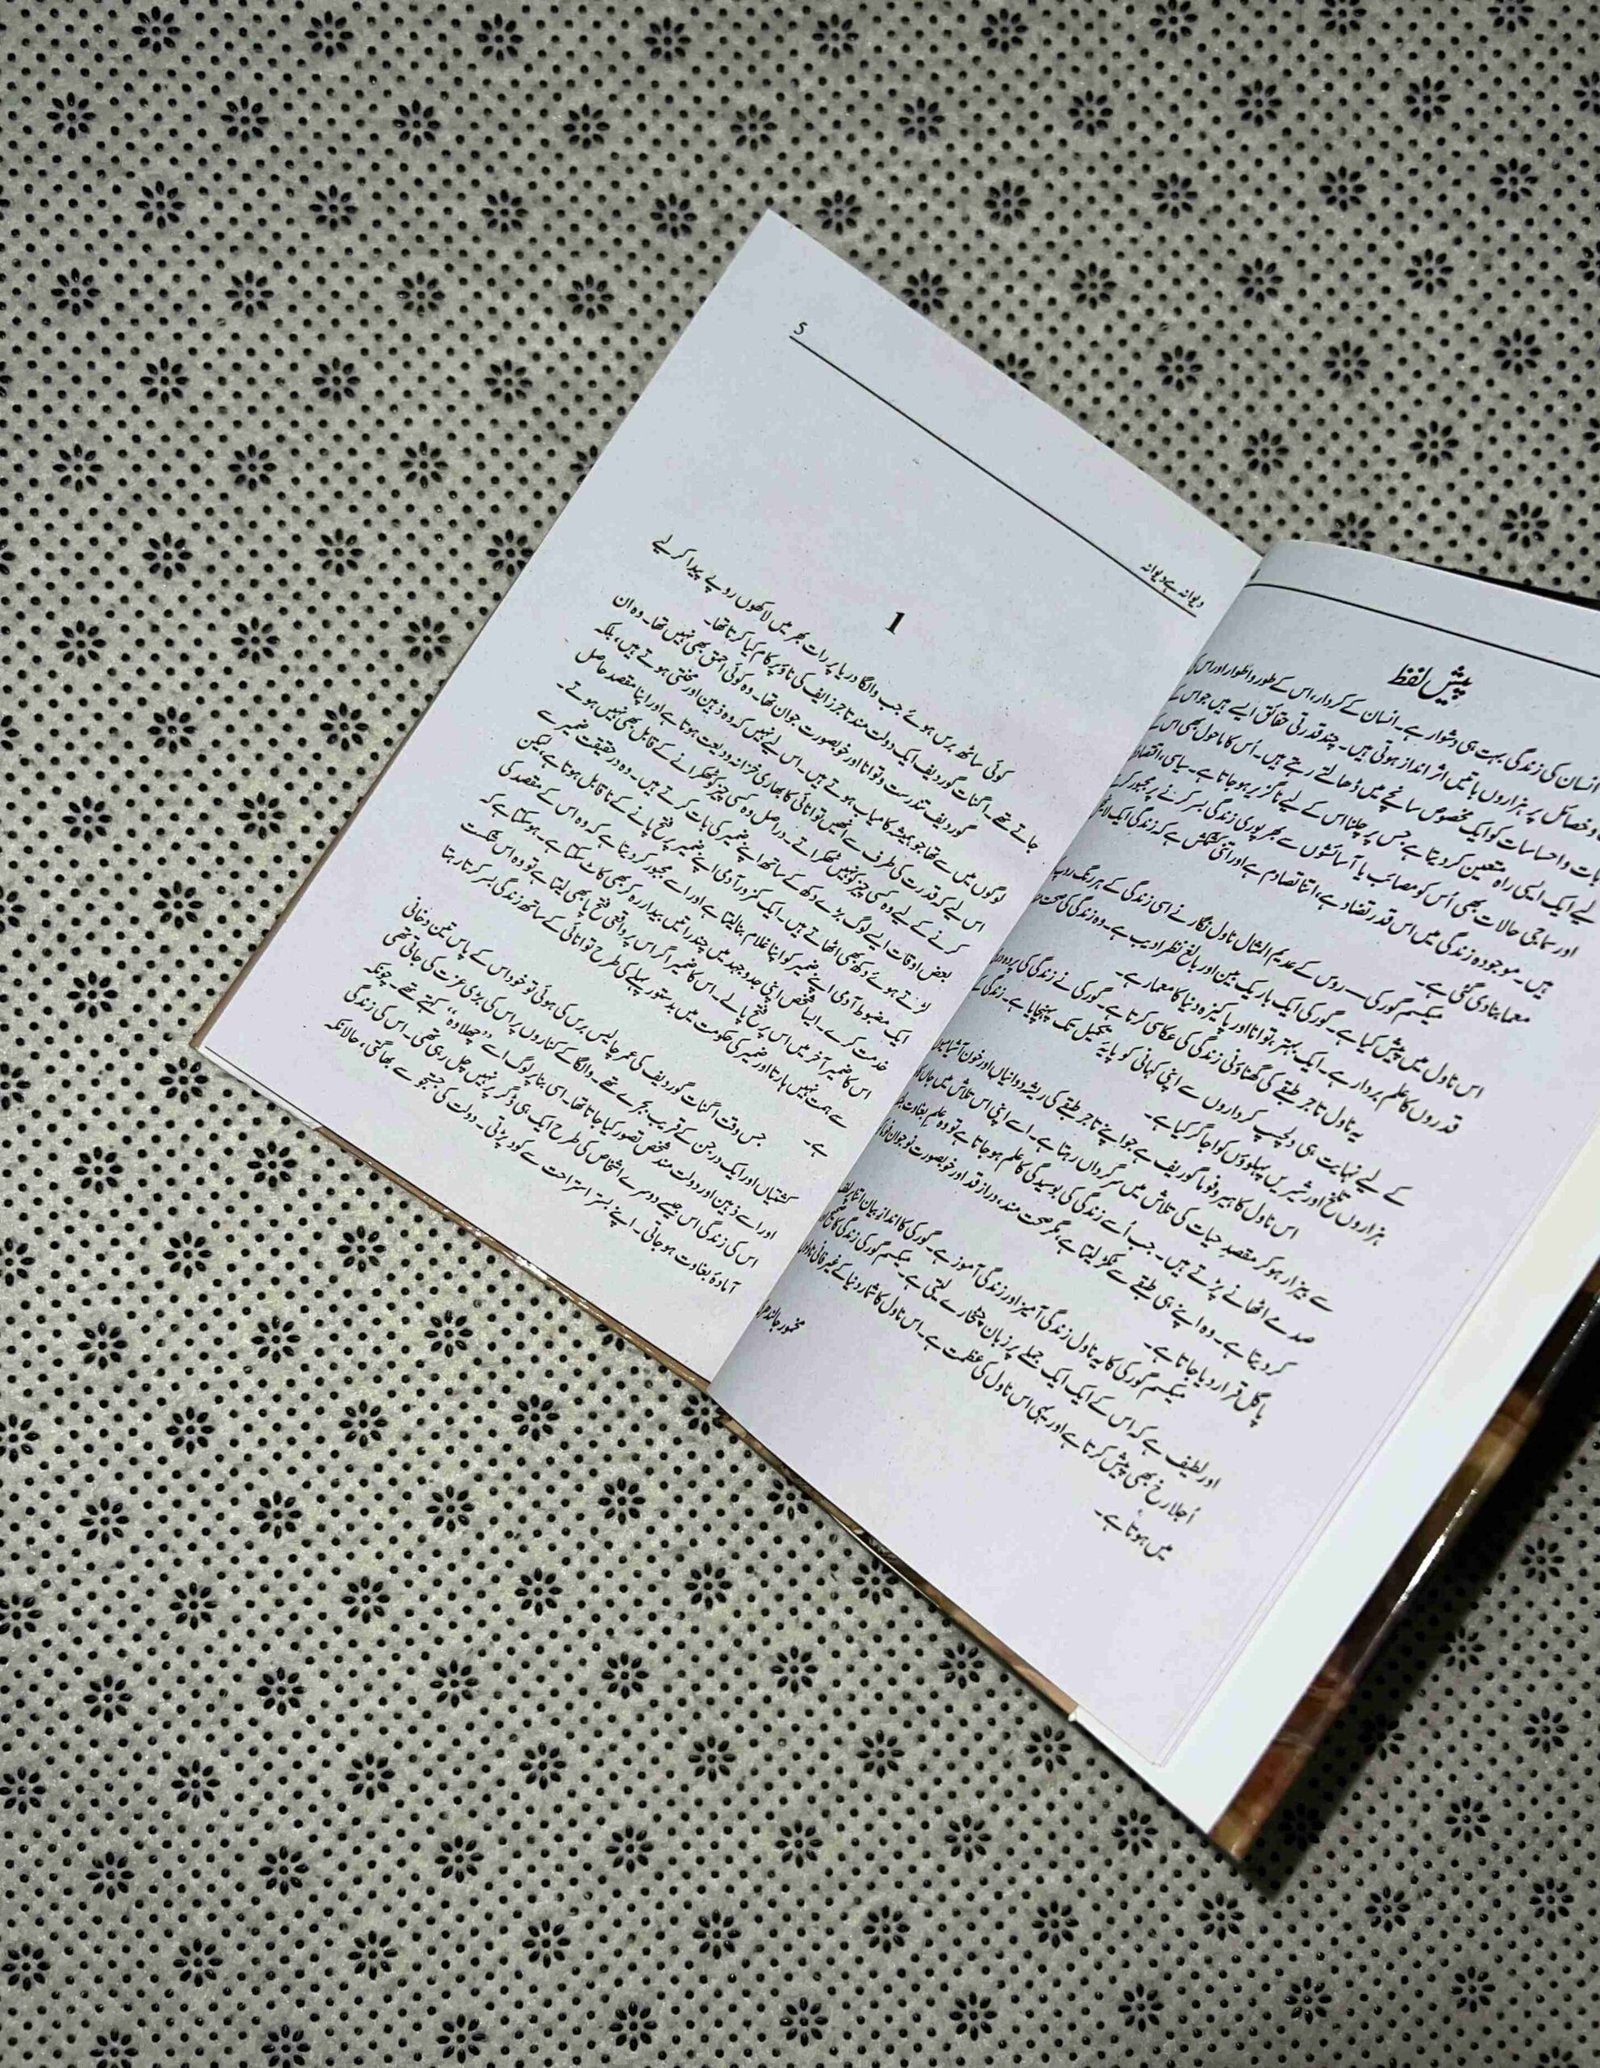 پیش لفظ
انسان کی زندگی بہت ہی دشوار ہے۔ انسان کے کردار، اس کے طور و اطوار اور اس کی
و خصائل پر ہزاروں باتیں اثر انداز ہوتی ہیں۔ چند قدرتی حقائق ایسے ہیں جو اس کے
بات و احساسات کو ایک مخصوص سانچے میں ڈھالتے رہتے ہیں۔ اُس کا ماحول بھی اس کے
لیے ایک ایسی راہ متعین کر دیتا ہے جس پر چلنا اس کے لیے ناگزیر ہو جاتا ہے۔ سیاسی، اقتصادی
اور سماجی حالات بھی اُس کو مصائب یا آسائشوں سے بھرپوری زندگی بسر کرنے پر مجبور کرتے
ہیں۔ موجودہ زندگی میں اس قدر تضاد ہے، اتنا تصادم ہے اور اتنی کشمکش ہے کہ زندگی ایک
معما بنا دی گئی ہے۔
میکسم گورکی — روس کے عدیم المثال ناول نگار نے اسی زندگی کے ہر رنگ روپ
اس ناول میں پیش کیا ہے۔ گورکی ایک باریک بین اور بالغ نظر ادیب ہے۔ وہ زندگی کی صحت
قدروں کا علم بردار ہے۔ ایک بہتر، توانا اور پاکیزہ دنیا کا معمار ہے۔
یہ ناول تاجر طبقے کی گھناؤنی زندگی کی عکاسی کرتا ہے۔ گورکی نے زندگی کی پردہ
کے لیے نہایت ہی دلچسپ کرداروں سے اپنی کہانی کو پایۂ تکمیل تک پہنچایا ہے۔ زندگی کے
ہزاروں تلخ اور شیریں پہلوؤں کو اجاگر کیا ہے۔
اس ناول کا ہیرو فوما گوردیف ہے جو اپنے تاجر طبقے کی ریشہ دوانیاں اور خون آشامیوں
سے بیزار ہو کر مقصدِ حیات کی تلاش میں سرگرداں رہتا ہے۔ اسے اپنی اس تلاش میں جاں
صدمے اٹھانے پڑتے ہیں۔ جب اُسے زندگی کی بوسیدگی کا علم ہو جاتا ہے تو وہ علمِ بغاوت بلند
کر دیتا ہے۔ وہ اپنے ہی طبقے سے ٹکر لیتا ہے مگر صحت مند، دراز قد اور خوبصورت نوجوان فوما کو
پاگل قرار دیا جاتا ہے۔
میکسم گورکی کا یہ ناول زندگی آمیز اور زندگی آموز ہے۔ گورکی کا اندازِ بیان اتنا پر
اور لطیف ہے کہ اس کے ایک ایک جملے پر زبان چٹخارے لیتی ہے۔ میکسم گورکی زندگی کا
اُجلا رخ بھی پیش کرتا ہے اور یہی اس ناول کی عظمت ہے۔ اس ناول کا شمار دنیا کے غیر فانی ناولوں
میں ہوتا ہے۔
مخمور جالندھری
دیوانہ ہے دیوانہ
5
1
کوئی ساٹھ برس ہوئے جب والگا دریا پر رات بھر میں لاکھوں روپے پیدا کر لیے
جاتے تھے۔ اگنات گوردیف ایک دولت مند تاجر زایف کی ناؤ پر کام کیا کرتا تھا۔
گوردیف تندرست و توانا اور خوبصورت جوان تھا۔ وہ کوئی احمق بھی نہیں تھا۔ وہ ان
لوگوں میں سے تھا جو ہمیشہ کامیاب ہوتے ہیں۔ اس لیے نہیں کہ وہ ذہین اور محنتی ہوتے ہیں، بلکہ
اس لیے کہ قدرت کی طرف سے اُنھیں توانائی کا بھاری خزانہ ودیعت ہوتا ہے اور اپنا مقصد حاصل
کرنے کے لیے وہ کسی چیز کو نہیں ٹھکراتے۔ دراصل وہ کسی چیز کو ٹھکرانے کے قابل بھی نہیں ہوتے۔
بعض اوقات ایسے لوگ بڑے دکھ کے ساتھ اپنے ضمیر کی بات کرتے ہیں۔ وہ درحقیقت ضمیر سے
لڑتے ہوئے دکھ بھی اٹھاتے ہیں۔ ایک کمزور آدمی اپنے ضمیر پر فتح پانے کے ناقابل ہوتا ہے، لیکن
ایک مضبوط آدمی اپنے ضمیر کو اپنا غلام بنا لیتا ہے اور اسے مجبور کر دیتا ہے کہ وہ اس کے مقصد کی
خدمت کرے۔ ایسا شخص اپنی جدوجہد میں چند راتیں بیدار رہ کر بھی کاٹ سکتا ہے۔ ہو سکتا ہے کہ
اس کا ضمیر آخر میں اس پر فتح پا لے۔ اس کا ضمیر اگر اس پر واقعی فتح پا بھی لیتا ہے تو وہ اس شکست
سے ہمت نہیں ہارتا اور ضمیر کی حکومت میں بدستور پہلے کی طرح توانائی کے ساتھ زندگی بسر کرتا رہتا
ہے۔
جس وقت اگنات گوردیف کی عمر چالیس برس کی ہوئی تو خود اس کے پاس تین دخانی
کشتیاں اور ایک درجن کے قریب بجرے تھے۔ والگا کے کناروں پر اس کی بڑی عزت کی جاتی تھی
اور اسے ذہین اور دولت مند شخص تصور کیا جاتا تھا۔ اسی بنا پر لوگ اسے ”چھلاوہ“ کہتے تھے۔ چونکہ
اس کی زندگی اس جیسے دوسرے اشخاص کی طرح ایک ہی ڈگر پر نہیں چل رہی تھی۔ اس کی زندگی
آمادۂ بغاوت ہو جاتی۔ اپنے بسترِ استراحت سے کود پڑتی۔ دولت کی جستجو سے بھاگتی، حالانکہ